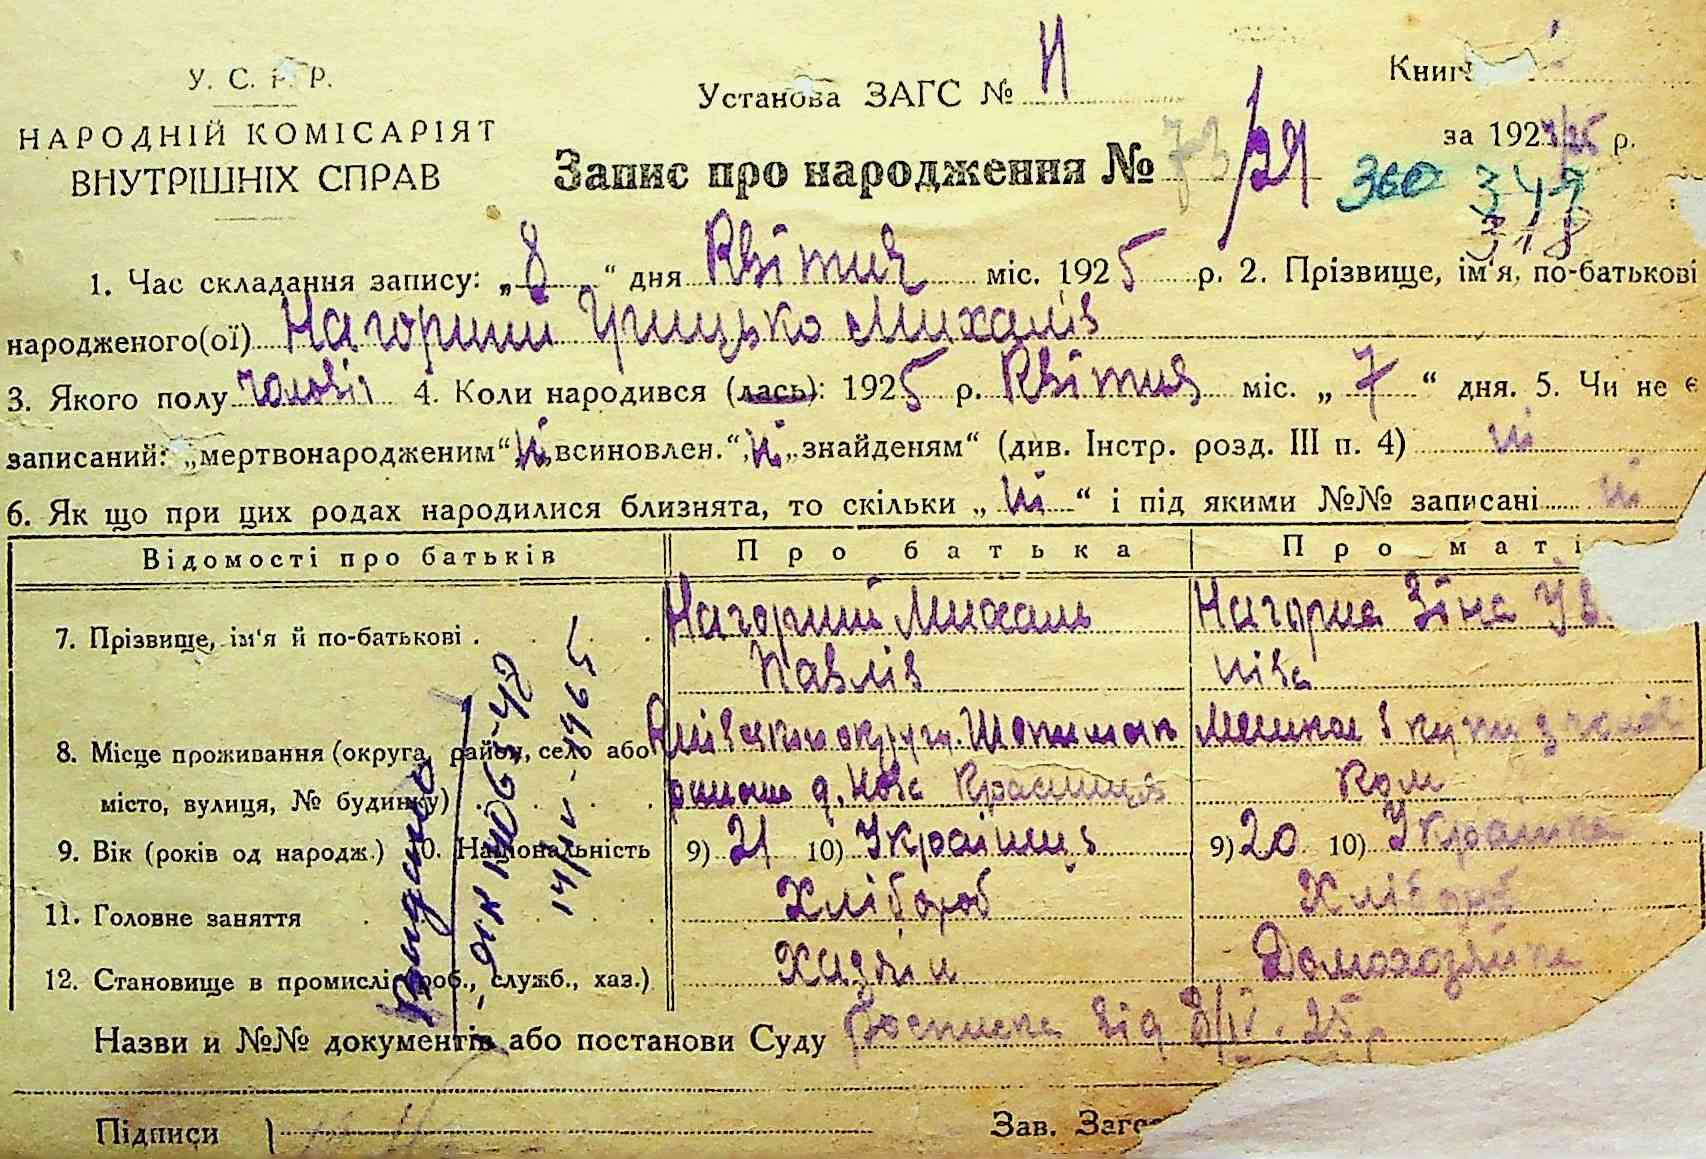 У. С. Р. Р.
НАРОДНІЙ КОМІСАРІЯТ
ВНУТРІШНІХ СПРАВ
Установа ЗАГС №
Запис про народження № 73/29
Книга
за 192 /25 р.
360 349
318
1. Час складання запису: „8“ дня Квітня міс. 1925 р. 2. Прізвище, ім'я, по-батькові
народженого(ої) Нагорний Грицько Михалів
3. Якого полу 4. Коли народився (лась): 1925 р. Квітня міс. „7“ дня. 5. Чи не є
записаний: „мертвонародженим“ ні „всиновлен.“ ні „знайденям“ (див. Інстр. розд. III п. 4) ні
6. Як що при цих родах народилися близнята, то скільки „ні“ і під якими №№ записані ні
Відомості про батьків Про батька Про маті
7. Прізвище, ім'я й по-батькові . Нагорний Михаль Нагорна Зіна
Павлів
8. Місце проживання (округа, район, село або округи
місто, вулиця, № будинку) д. Нова Красниця ком
9. Вік (років од народж.) 10. Національність 9) 21 10) Українець 9) 20 10) Українка
11. Головне заняття Хлібороб Хлібороб
12. Становище в промислі (роб., служб., хаз.) Хазяїн Домохозяйка
Видано
Назви и №№ документів або постанови Суду Росписка від 8/IV. 25 р
Підписи
Зав. Загс